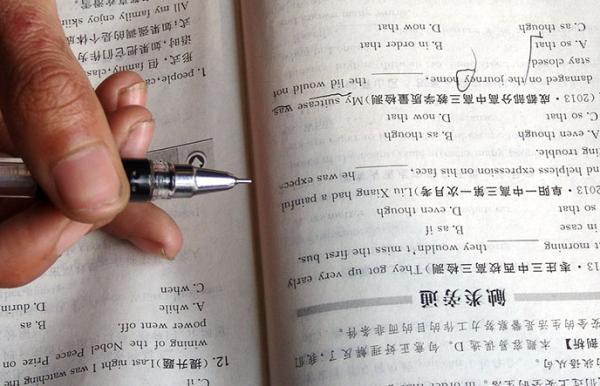 in order that
状语从句。
剖析】 本题容易误选 D。句意正好理解反了，我们
安全的生活是警察努力工作的目的而非条件。
触类旁通
13·枣庄三中西校高三检测) They got up very early
at morning ______ they wouldn't miss the first bus.
in case B. as if
so that D. even though
2013·阜阳一中高三第一次月考) Liu Xiang had a painful
nd helpless expression on his face, ______ he was expec-
ing trouble.
A. even B. as though
C. so that D. now that
(2013·成都部分高中高三教学质量检测) My suitcase was
damaged on the journey home, ______ the lid would not
stay closed
A. so that B. in order that
C. as though D. now that
C. if
12. (提升题) Last night I was watching the
wining of the Nobel Peace Prize on
power went off.
A. while B. as
C. when D. durin
1. people, family, class,
形式，但
话时，如果把它们作为
式；如果强调的是个体
All my family enjoy skiing